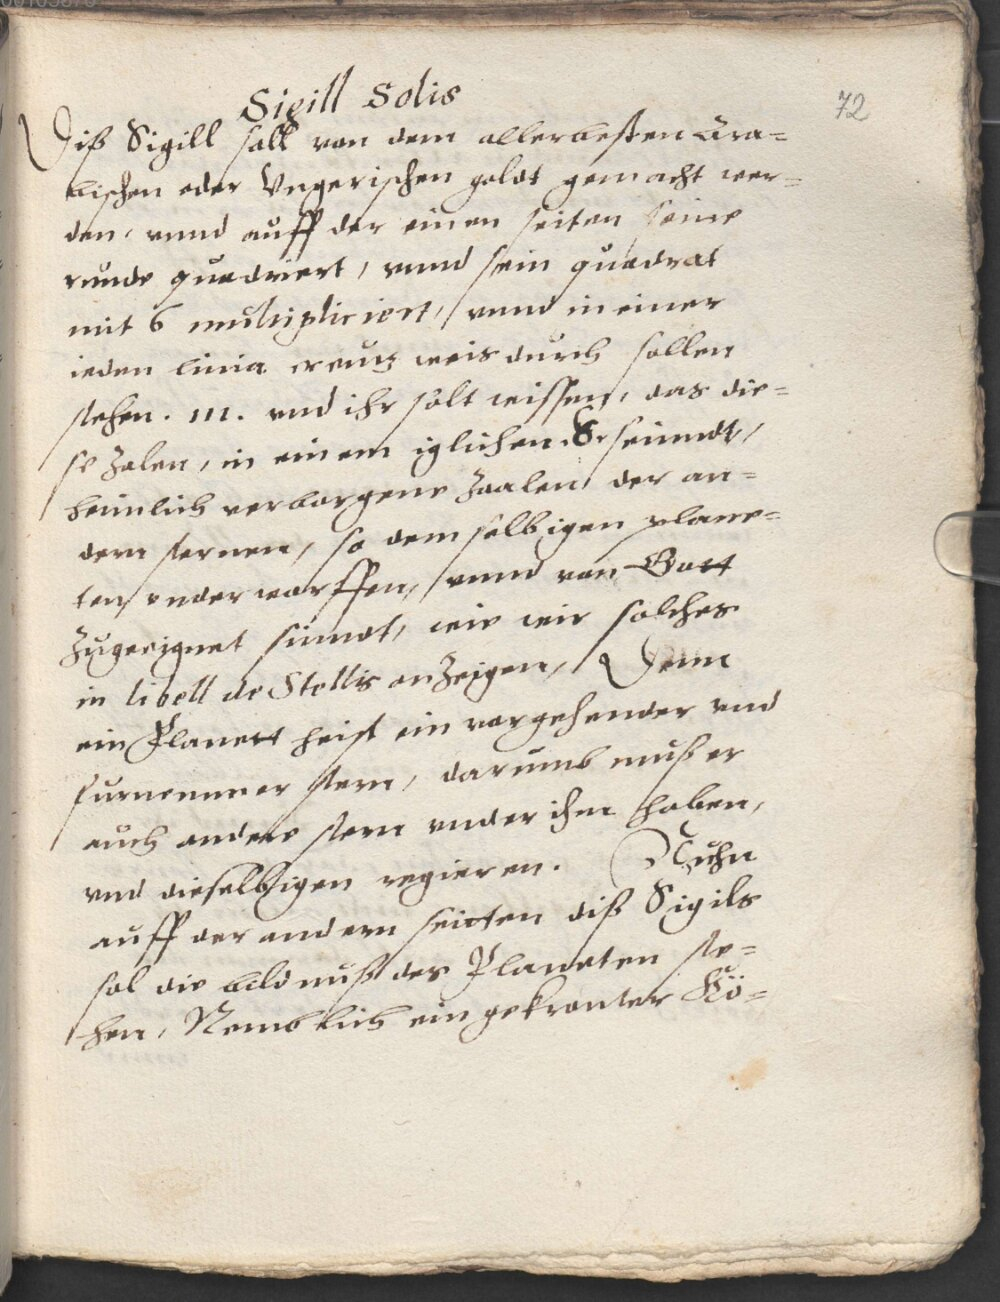 72
Sigill Solis
Diß Sigill soll von dem allerbesten Ara=
bischen oder Vngerischen goldt gemacht wer=
den, vnnd auff der einen seiten seine
runde quadriert, vnnd sein quadrat
mit 6 multipliciert, vnnd in einer
ieden linia creutz weis durch sollen
stehen. 111. vnd ihr solt wissen, das die=
se Zalen, in einem iglichen seinndt,
heimlich verborgene Zaalen der an=
dern sternen, so dem selbigen plane=
ten vnderworffen, vnnd von Gott
Zugeeignet sinndt, wie wir solches
in libell de Stellis anZeigen, Denn
ein Planett heist ein vorgehender vnd
furnemmer stern, darumb muß er
auch andere stern vnder ihm haben,
vnd dieselbigen regieren. Nuhn
auff der andern seitten diß Sigils
sol die bildnuß des Planeten ste=
hen, Nemblich ein gekronter Kö=